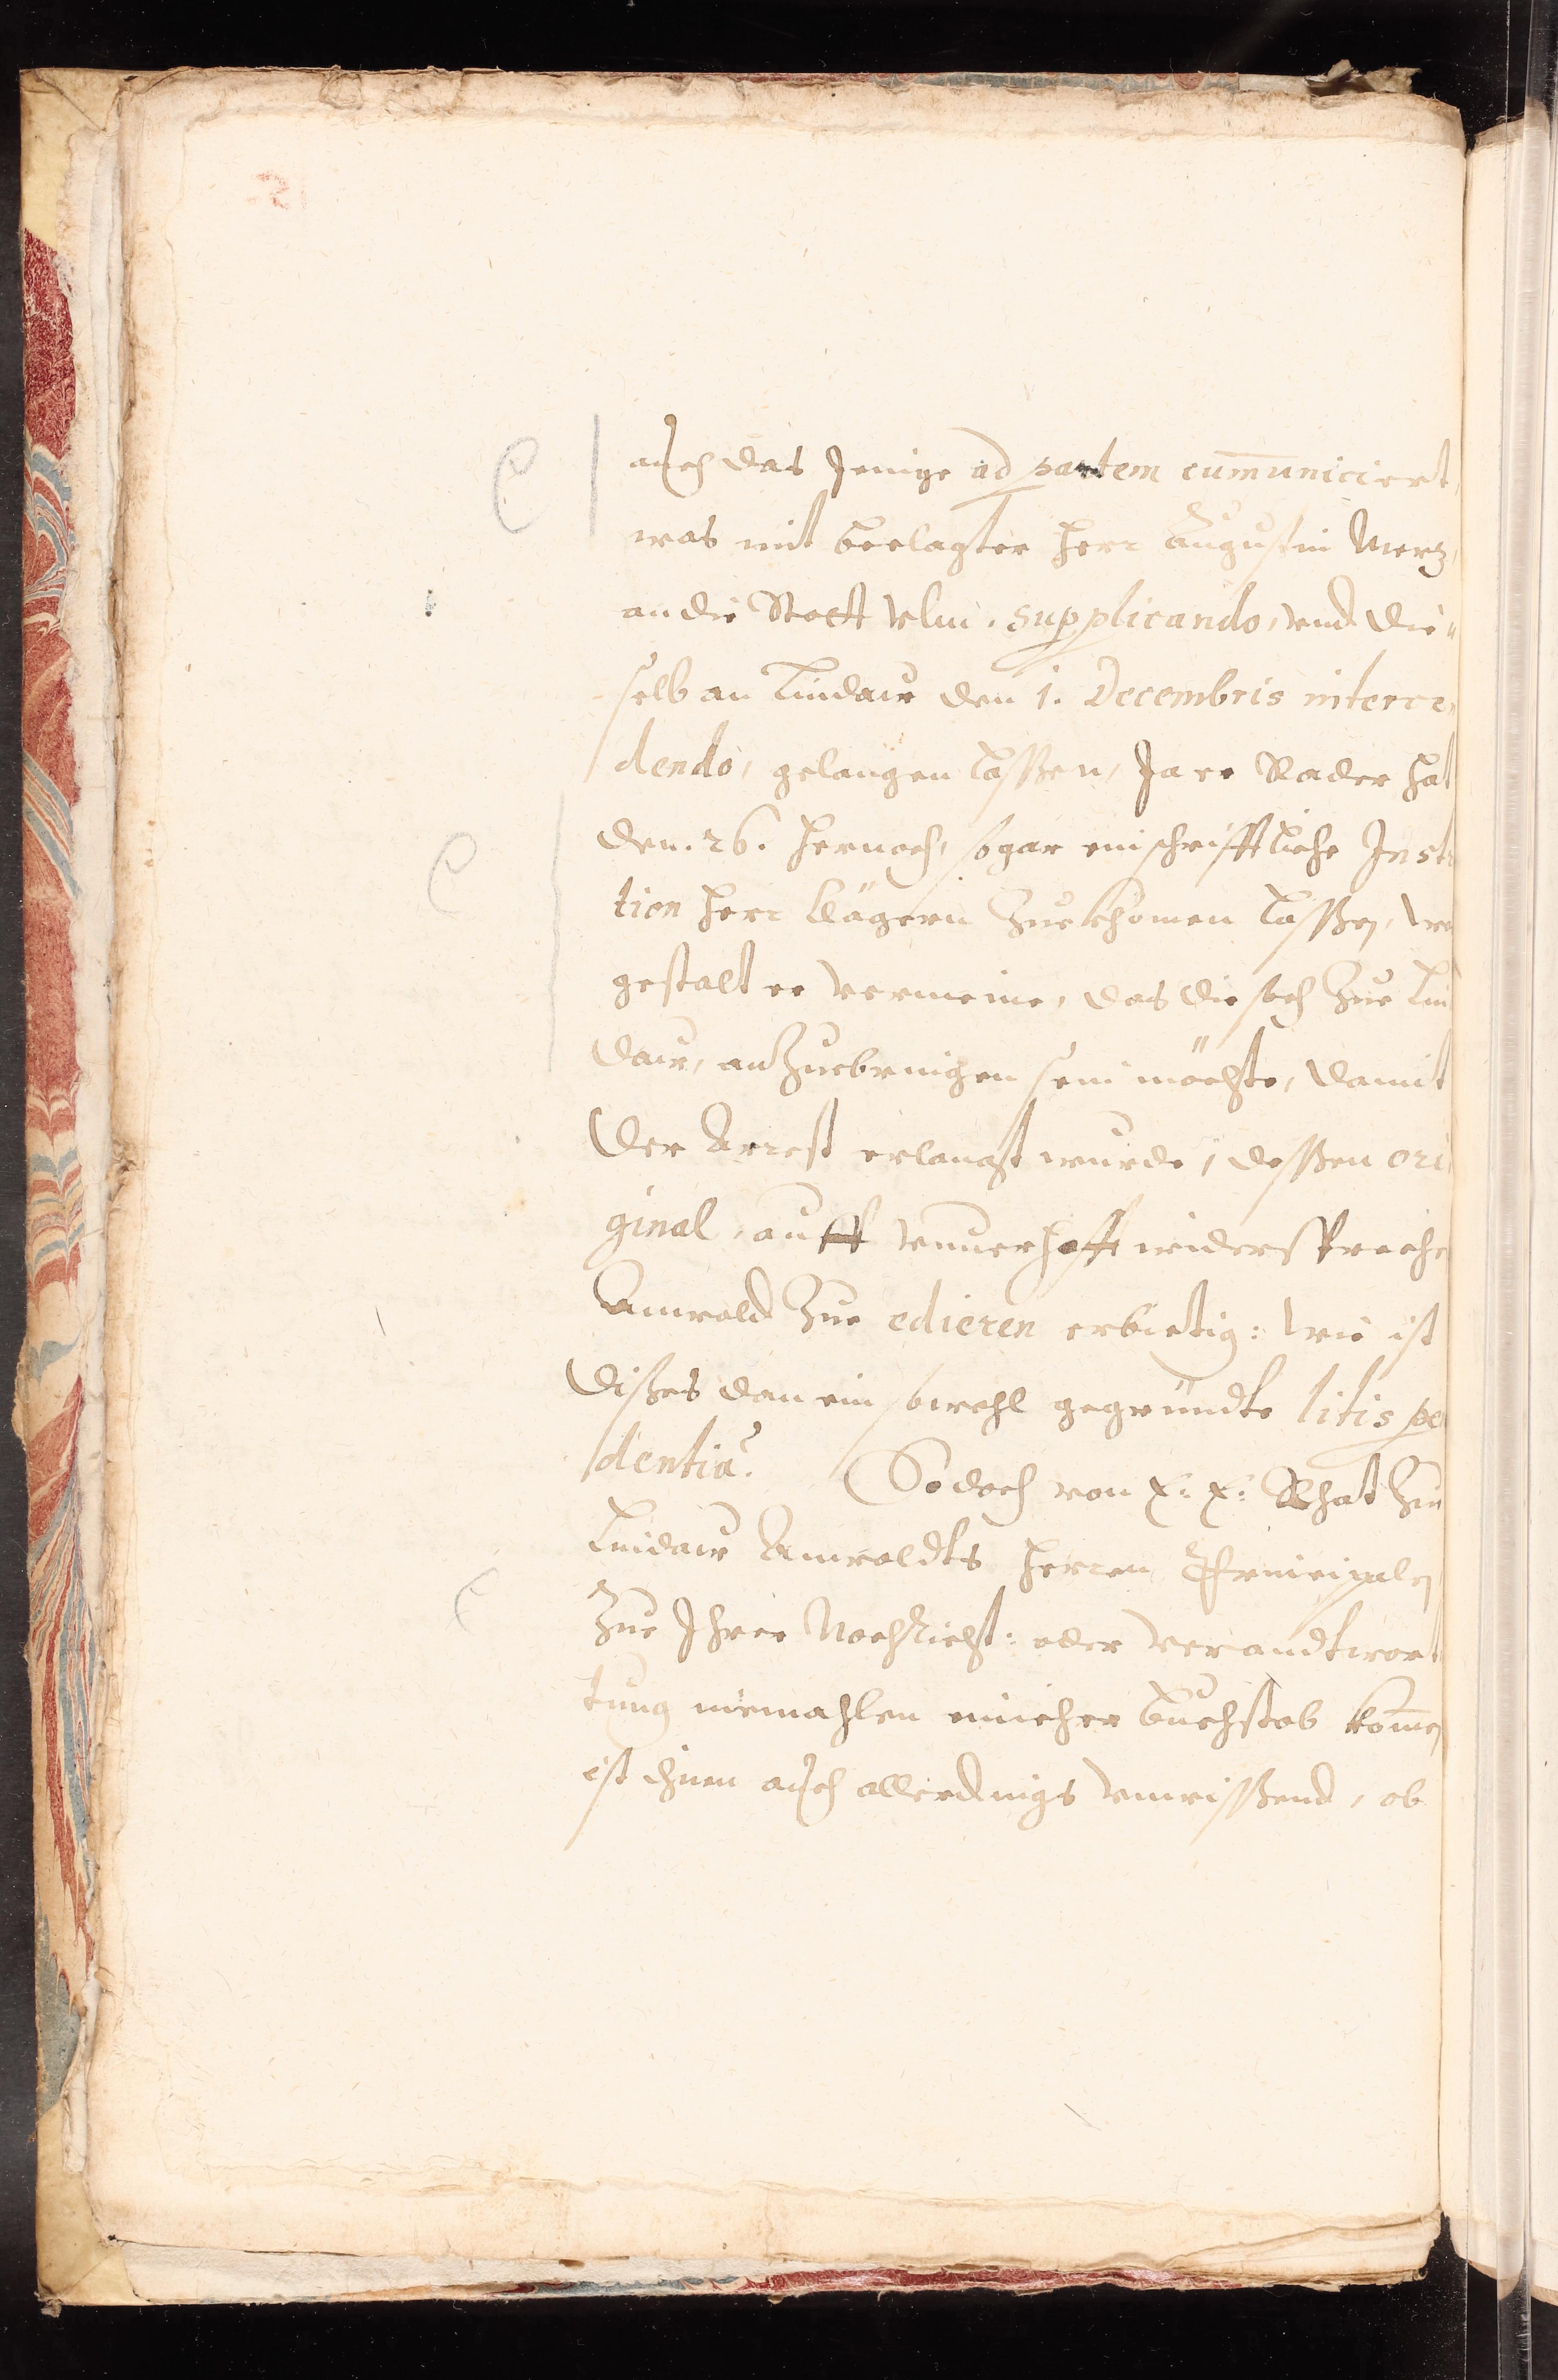 auch das Jenige ad partem cum̄uniciert,
was mit beclagter Herr Augustin Mertz,
an die Statt Vlm. supplicando, vnd die"
selb an Lindaw den 1. Decembris interce"
dendo, gelangen lassen, Ja er Rader hat
den. 26. hernach, sogar ein schrifftliche Inst
tion Herr Clägern Zue khomen lassen, we
gestalt er vermeine, das die sach Zue Lin
daw, anZuebringen sein möchte, damit
der Arrest erlangt wurde, dessen ori
ginal, auff vnuerhofft widersprache
Anwald Zue edieren erbietig: Wie ist
dises dan ein sowohl gegründte litis pe
dentia? So doch von E: E: Rhat Zue
Lindaw Anwaldts Herren Principalen
Zue Ihrer Nachricht: oder Verandtwort
tung niemahlen einicher buchstab komen
ist ihnen auch allerdings vnwissend, ob